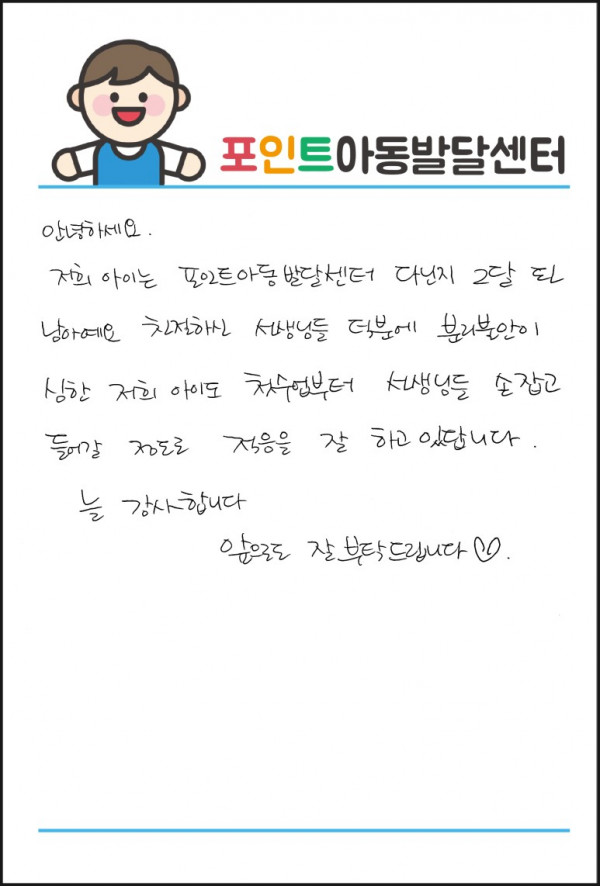 포인트아동발달센터
안녕하세요.
저희 아이는 포인트아동발달센터 다닌지 2달 된
남아예요 친절하신 서생님들 덕분에 분리불안이
심한 저희 아이도 첫수업부터 서생님들 손잡고
들어갈 정도로 적응을 잘 하고 있답니다.
늘 감사합니다
앞으로도 잘 부탁드립니다♡.